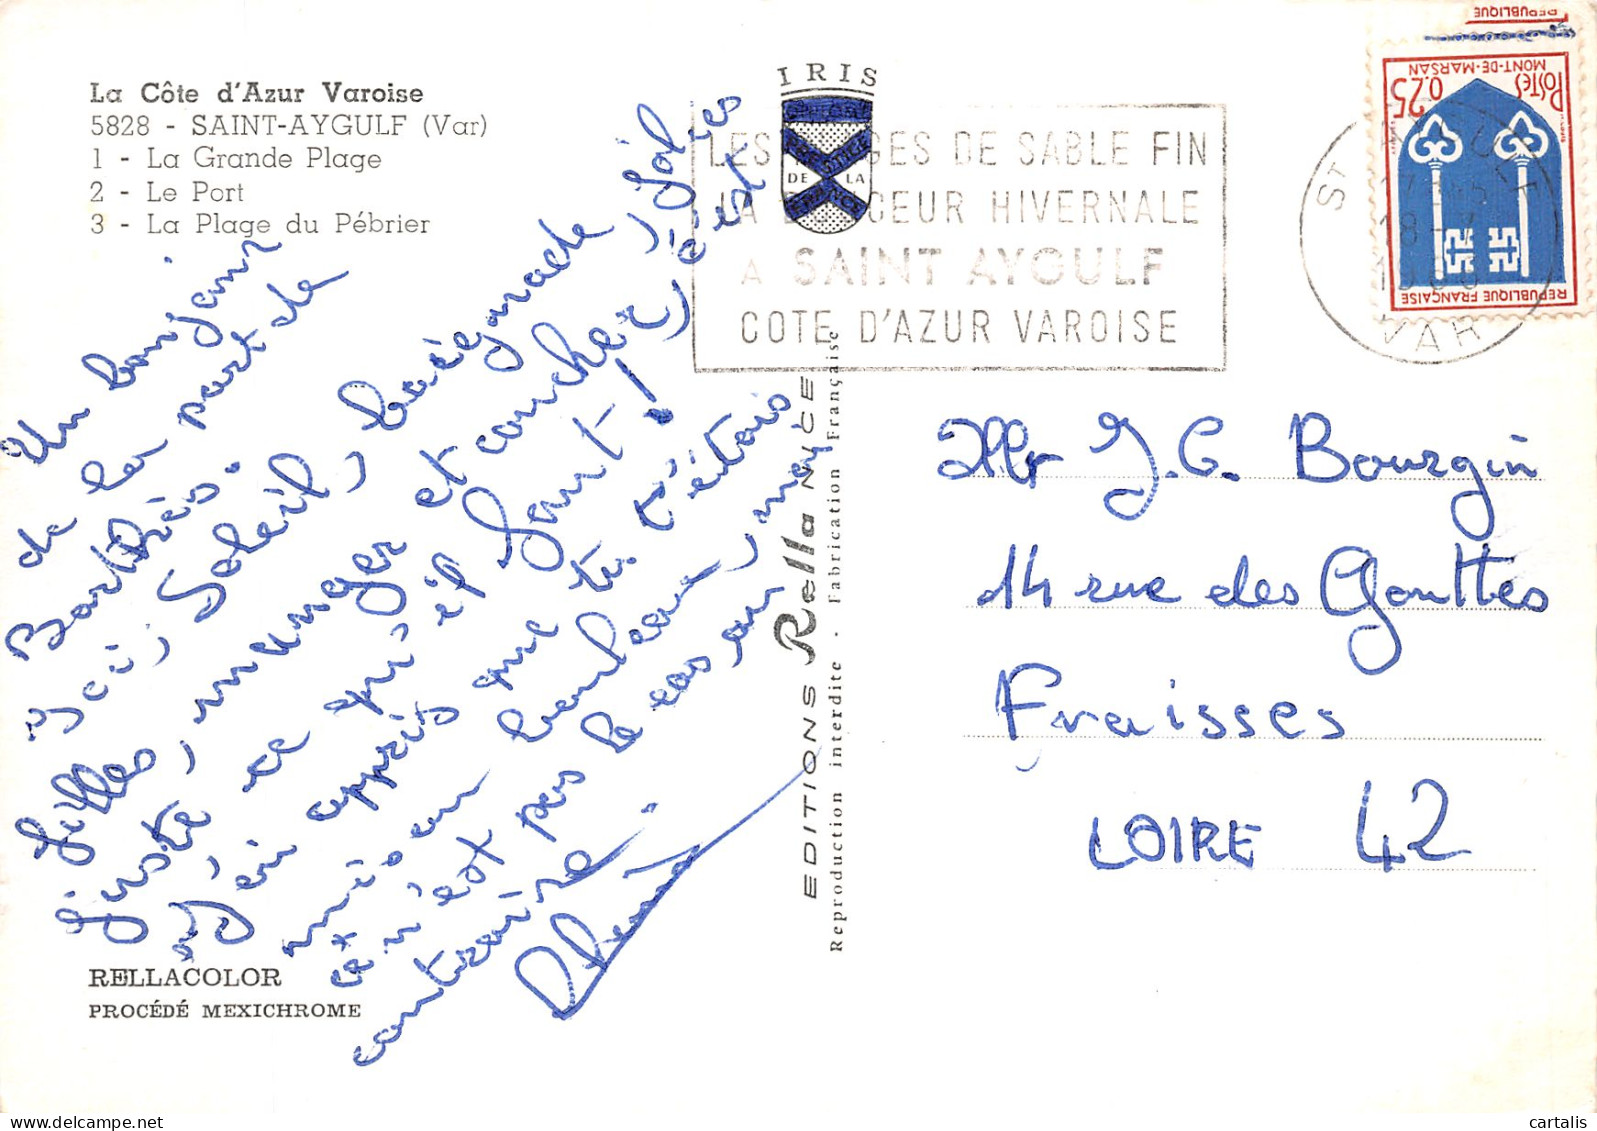 La Côte d'Azur Varoise
5828 - SAINT-AYGULF (Var)
1 - La Grande Plage
2 - Le Port
3 - La Plage du Pébrier
IRIS
DE LA
FRANCE
LES GES DE SABLE FIN
LA CEUR HIVERNALE
A SAINT AYGULF
COTE D'AZUR VAROISE
REPUBLIQUE
MONT-DE-MARSAN
POSTES 0.25
REPUBLIQUE FRANÇAISE
ST
18
VAR
Un bonjour
de la part de
Ici, Soleil, baignade, jolies
filles, manger et coucher, c'est
juste ce qu'il faut!
J'ai appris que tu t'étais
mis au bouleau, moi
ce n'est pas le cas au
contraire.
Mr J.C. Bourgin
14 rue des Gouttes
Fraisses
LOIRE 42
EDITIONS Rella NICE
Reproduction interdite - Fabrication Française
RELLACOLOR
PROCÉDÉ MEXICHROME
cartalis